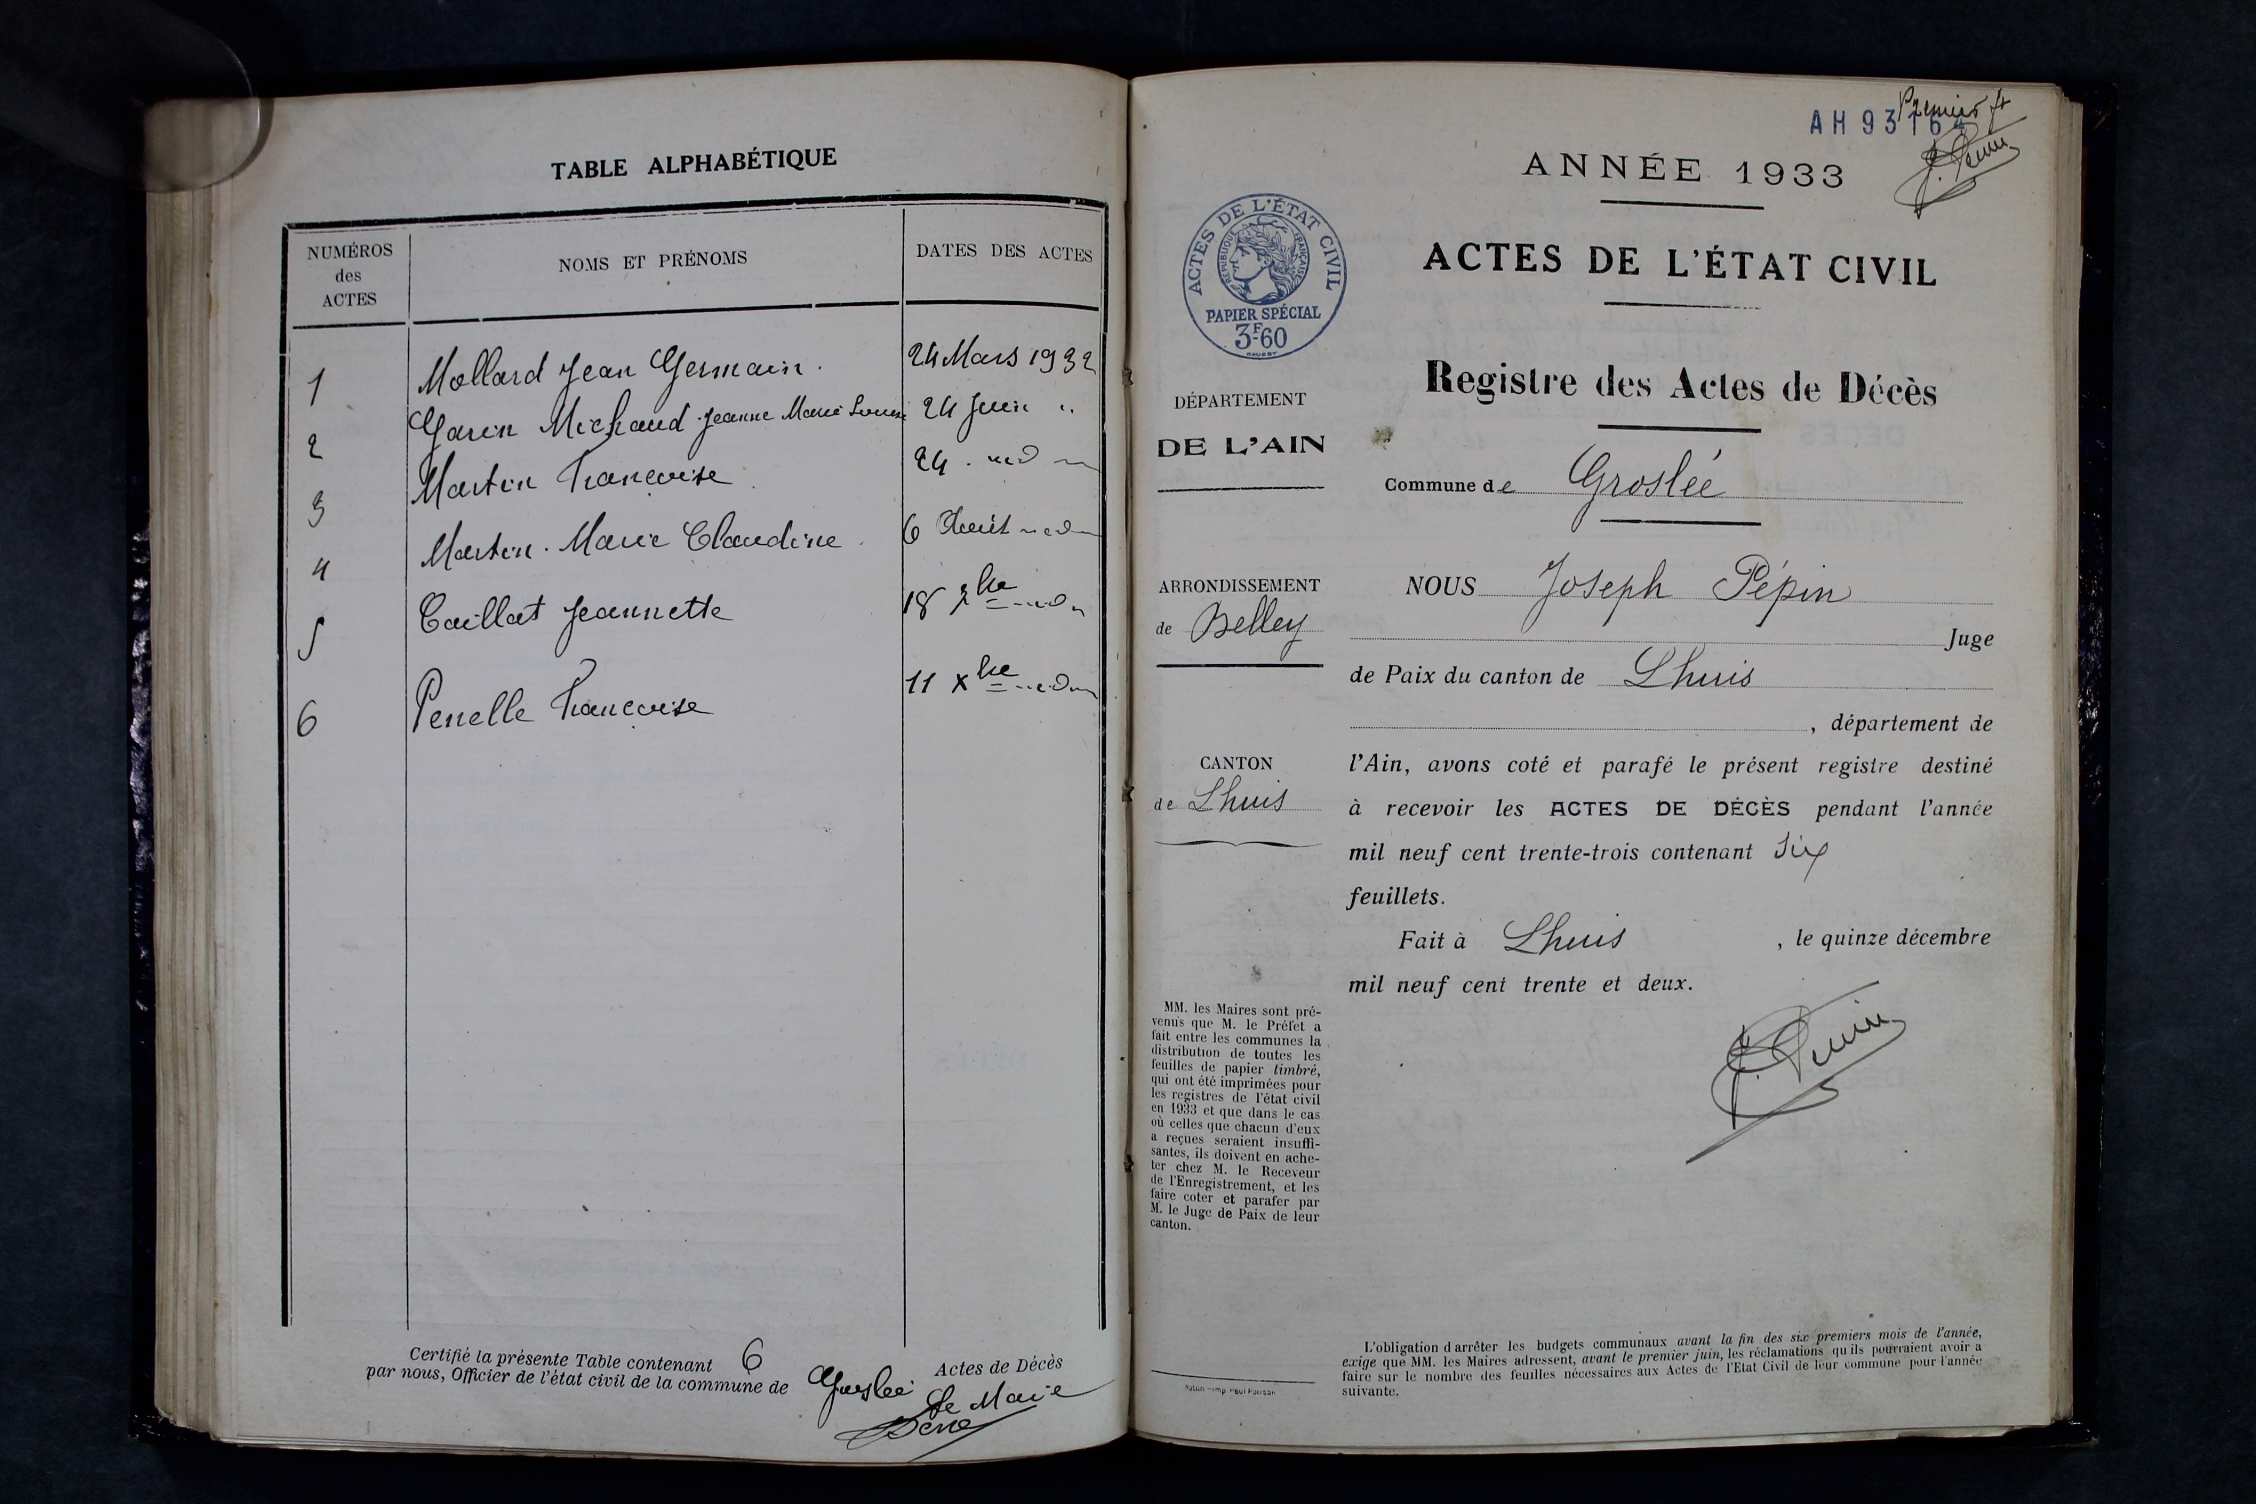 TABLE ALPHABÉTIQUE
NUMÉROS des ACTES
NOMS ET PRÉNOMS
DATES DES ACTES
1 Mollard Jean Germain. 24 Mars 1932
2 Garin Michaud Jeanne Marie Louise 24 Juin "
3 Martin Francoise 24
4 Martin. Marie Claudine. 6 Août
5 Caillat Jeannette 18
6 Penelle Francoise 11 Xbre
Certifié la présente Table contenant 6 Actes de Décès
par nous, Officier de l'état civil de la commune de Groslée
Le Maire
AH 93164
Premier f
J. Pépin
ANNÉE 1933
ACTES DE L'ÉTAT CIVIL
RÉPUBLIQUE FRANÇAISE
PAPIER SPÉCIAL
3F60
ACTES DE L'ÉTAT CIVIL
Registre des Actes de Décès
DÉPARTEMENT
DE L'AIN
Commune de Groslée
ARRONDISSEMENT
de Belley
CANTON
de Lhuis
NOUS Joseph Pépin
Juge
de Paix du canton de Lhuis
, département de
l'Ain, avons coté et parafé le présent registre destiné
à recevoir les ACTES DE DÉCÈS pendant l'année
mil neuf cent trente-trois contenant Six
feuillets.
Fait à Lhuis , le quinze décembre
mil neuf cent trente et deux.
J. Pépin
MM. les Maires sont pré-
venus que M. le Préfet a
fait entre les communes la
distribution de toutes les
feuilles de papier timbré,
qui ont été imprimées pour
les registres de l'état civil
en 1933 et que dans le cas
où celles que chacun d'eux
a reçues seraient insuffi-
santes, ils doivent en ache-
ter chez M. le Receveur
de l'Enregistrement, et les
faire coter et parafer par
M. le Juge de Paix de leur
canton.
L'obligation d'arrêter les budgets communaux avant la fin des six premiers mois de l'année,
exige que MM. les Maires adressent, avant le premier juin, les réclamations qu'ils pourraient avoir à
faire sur le nombre des feuilles nécessaires aux Actes de l'Etat Civil de leur commune pour l'année
suivante.